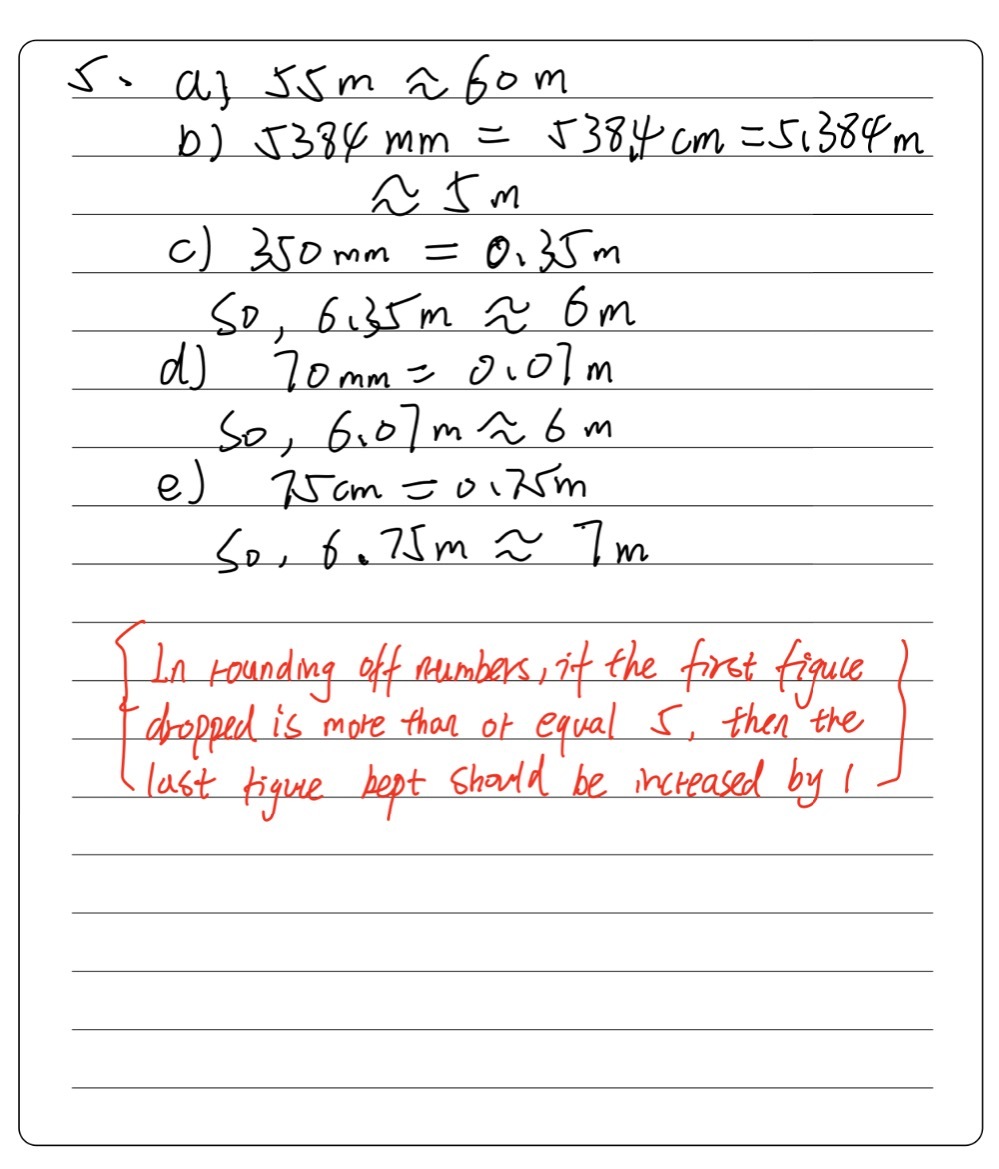 5. a) 55m ≈ 60m
b) 5384 mm = 538.4 cm = 5.384 m
≈ 5 m
c) 350 mm = 0.35 m
So, 6.35 m ≈ 6 m
d) 70 mm = 0.07 m
So, 6.07 m ≈ 6 m
e) 75 cm = 0.75m
So, 6.75 m ≈ 7 m
{In rounding off numbers, if the first figure
dropped is more than or equal 5, then the
last figure kept should be increased by 1}